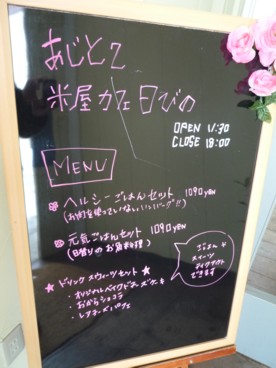 あじと2
米屋カフェ日びの
OPEN 11:30
CLOSE 18:00
MENU
ヘルシーごはんセット 1090yen
(お肉を使っていないハンバーグ!!)
元気ごはんセット 1090yen
(日替りのお魚料理)
★ドリンクスウィーツセット★
・オリジナルベイクドチーズケーキ
・おからショコラ
・レアチーズパフェ
ごはん や
スイーツ
テイクアウト
できます